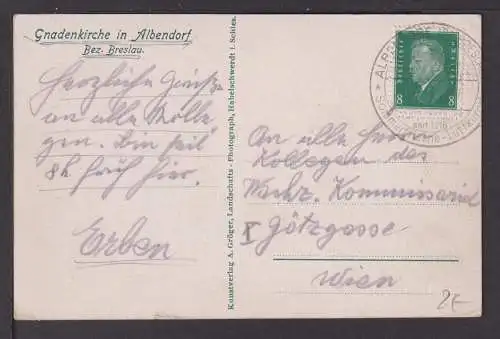 Gnadenkirche in Albendorf
Bez. Breslau.
Herzliche Grüße
an alle Kolle
gen. Bin seit
8h früh hier.
Erben
Kunstverlag A. Gröger, Landschafts - Photograph, Habelschwerdt i. Schles.
Deutsches Reich
8 8
An alle Herren
Kollegen des
Kommissariad
X Götzgasse
Wien
2€